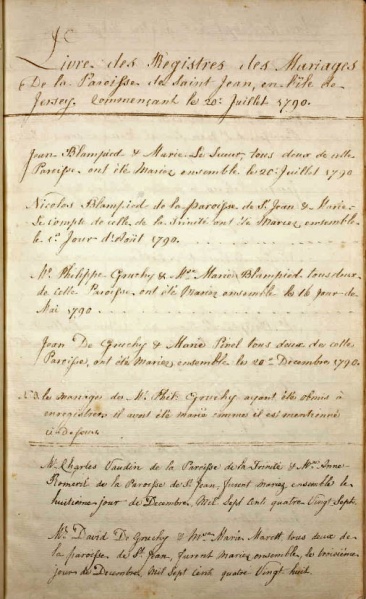 Livre des Registres des Mariages
De la Paroisse de Saint Jean, en l'ile de
Jersey. Commençant le 20e. Juillet 1790.
Jean Blampied & Marie Le Sueur, tous deux de cette
Paroisse ont été Mariez ensemble le 20e Juillet 1790
Nicolas Blampied de la paroisse de St. Jean & Marie
Le Compte de celle de la Trinité ont été Mariez ensemble
le Jour d'Août 1790.
Mr. Philippe Gruchy & Mse Marie Blampied tous deux
de cette Paroisse ont été Mariez ensemble le 16 jour de
Mai 1790.
Jean De Gruchy & Marie tous deux de cette
Paroisse, ont été Mariez ensemble le 20e Decembre 1790.
N.B. le mariage de Mr. Phil: Gruchy ayant été obmis à
enregistrer il avoit été marié comme il est mentionné
ci-dessus
Mr. Charles Vaudin de la Paroisse de la Trinité & Mse Anne
Romeril de la Paroisse de St. Jean, furent mariez ensemble le
huitieme jour de Decembre, Mil Sept Cent quatre Vingt Sept.
Mr. David De Gruchy & Mse Marie Marett, tous deux de
la paroisse de St. Jean, furent Mariez ensemble, le troisieme
jour de Decembre Mil Sept Cent quatre Vingt huit.